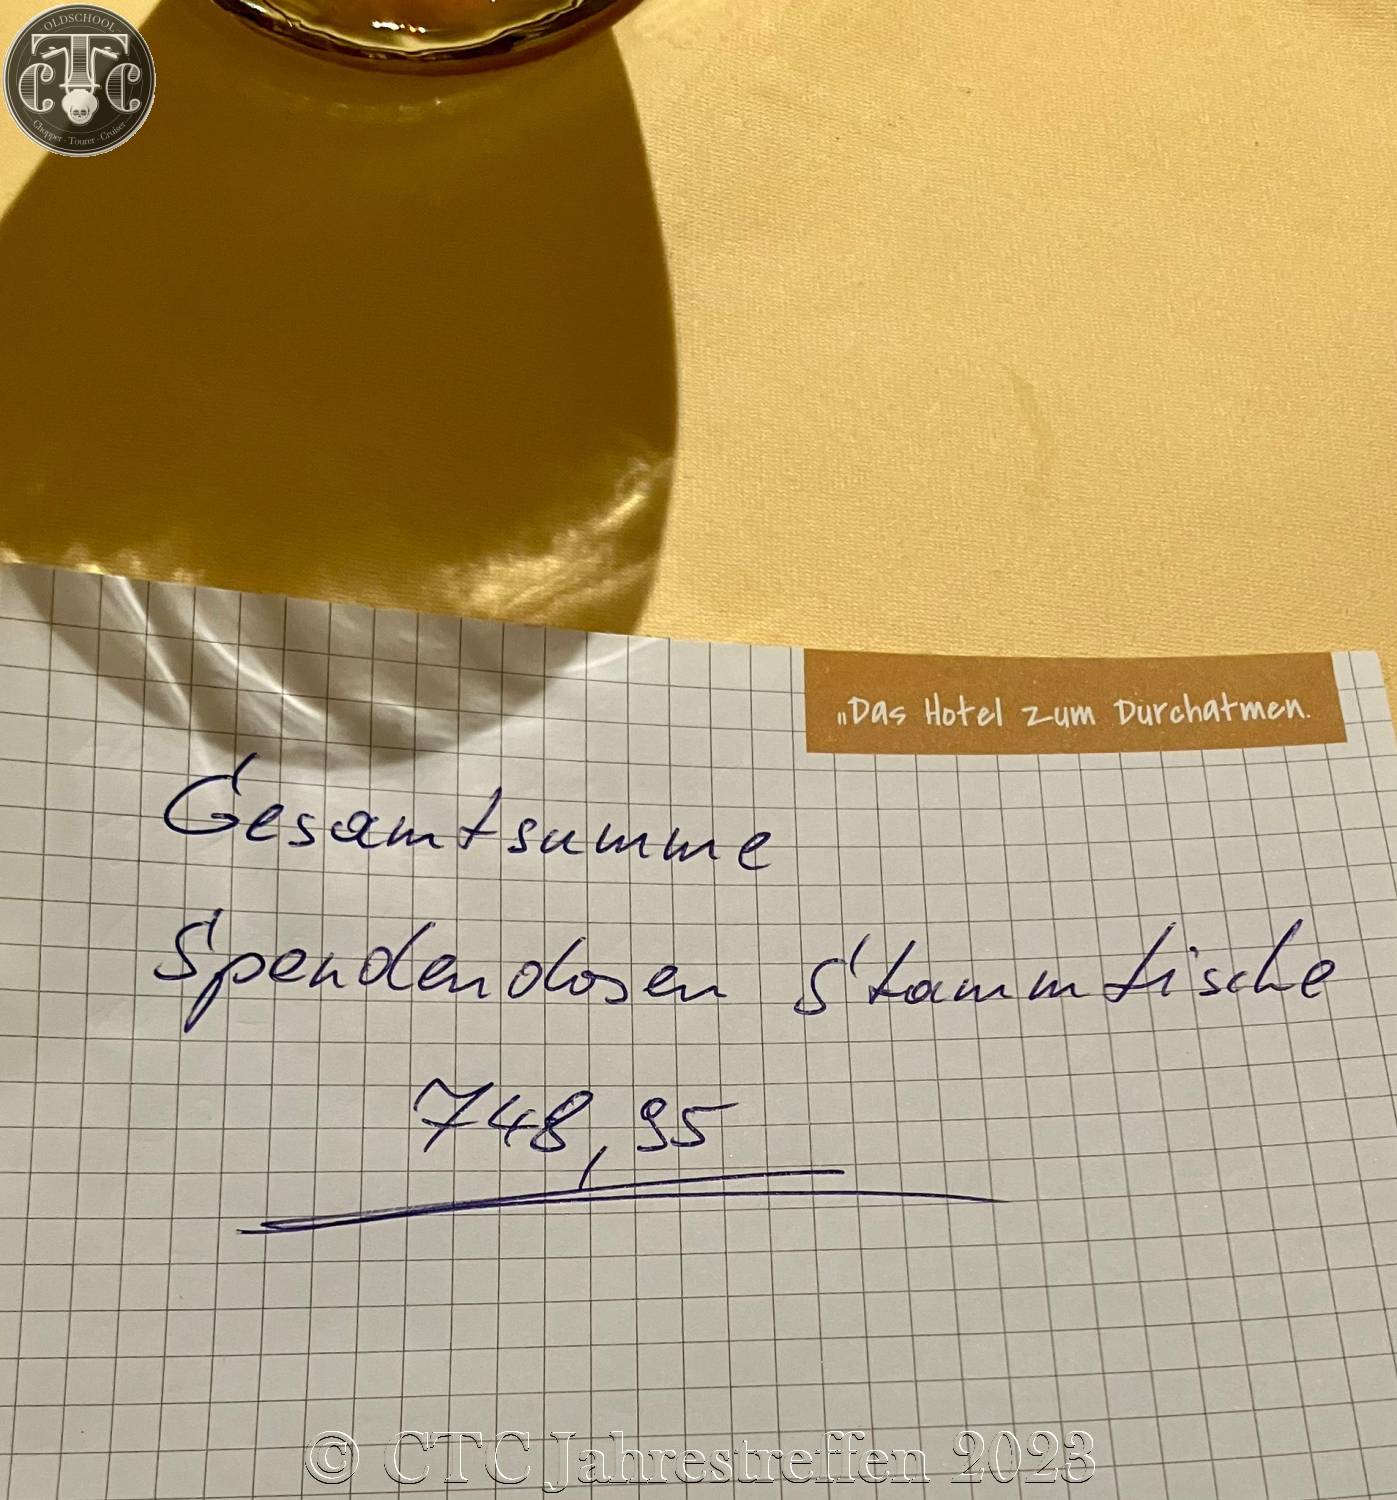 OLDSCHOOL
CTC
Chopper · Tourer · Cruiser
„Das Hotel zum Durchatmen.
Gesamtsumme
Spendendosen Stammtische
748,95
© CTC Jahrestreffen 2023